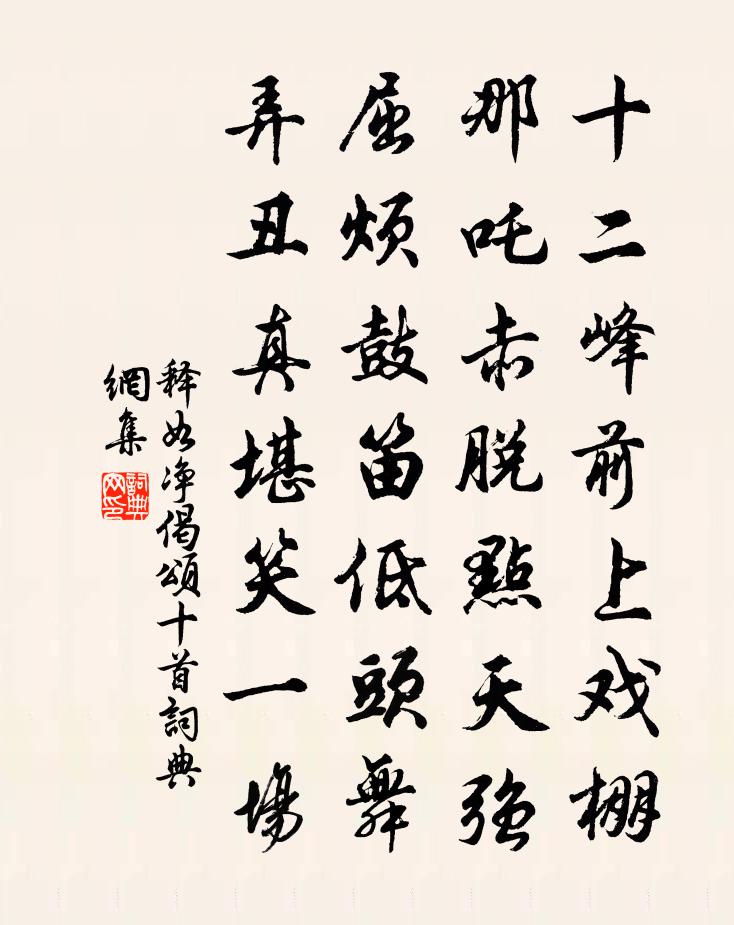 十二峰前上戏棚
那吒赤脱點天强
屈烦鼓笛低頭舞
弄丑真堪笑一場
释如净偈颂十首詞典
網集
詞典网印